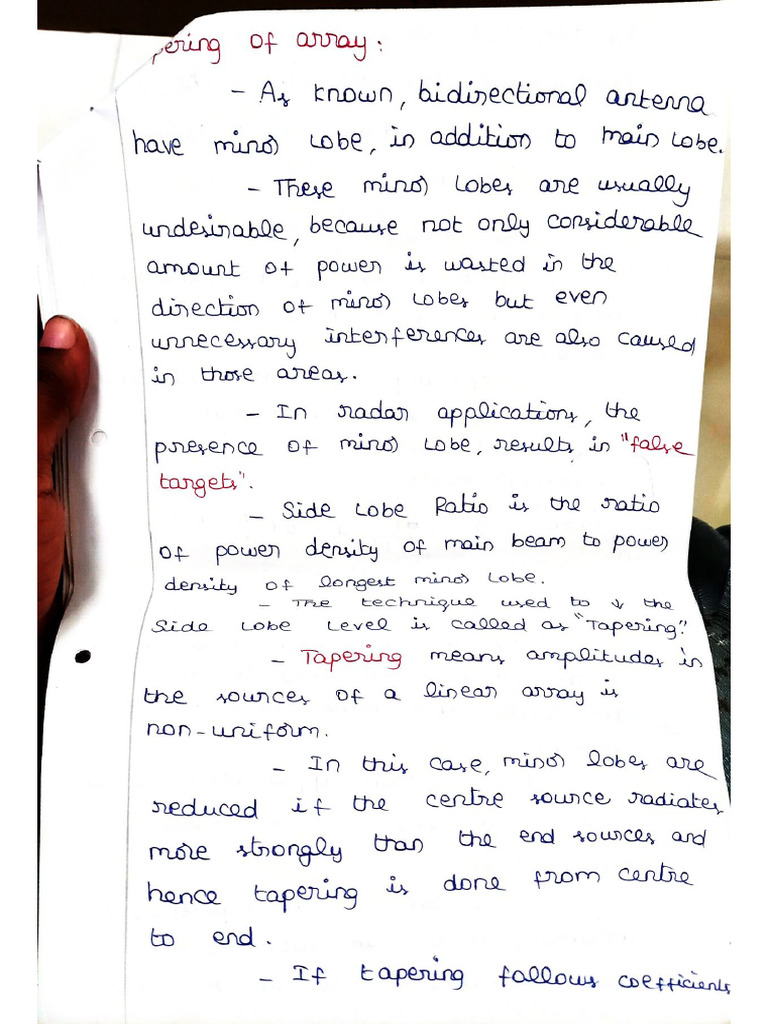 pering of array:
- As known, bidirectional antenna
have minor lobe, in addition to main lobe.
- These minor lobes are usually
undesirable, because not only considerable
amount of power is wasted in the
direction of minor lobes but even
unnecessary interferences are also caused
in those areas.
- In radar applications, the
presence of minor lobe, results in "false
targets".
- Side lobe Ratio is the ratio
of power density of main beam to power
density of longest minor lobe.
- The technique used to ↓ the
side lobe level is called as "Tapering".
- Tapering means amplitudes in
the sources of a linear array is
non-uniform.
- In this case, minor lobes are
reduced if the centre source radiates
more strongly than the end sources and
hence tapering is done from centre
to end.
- If tapering follows coefficients